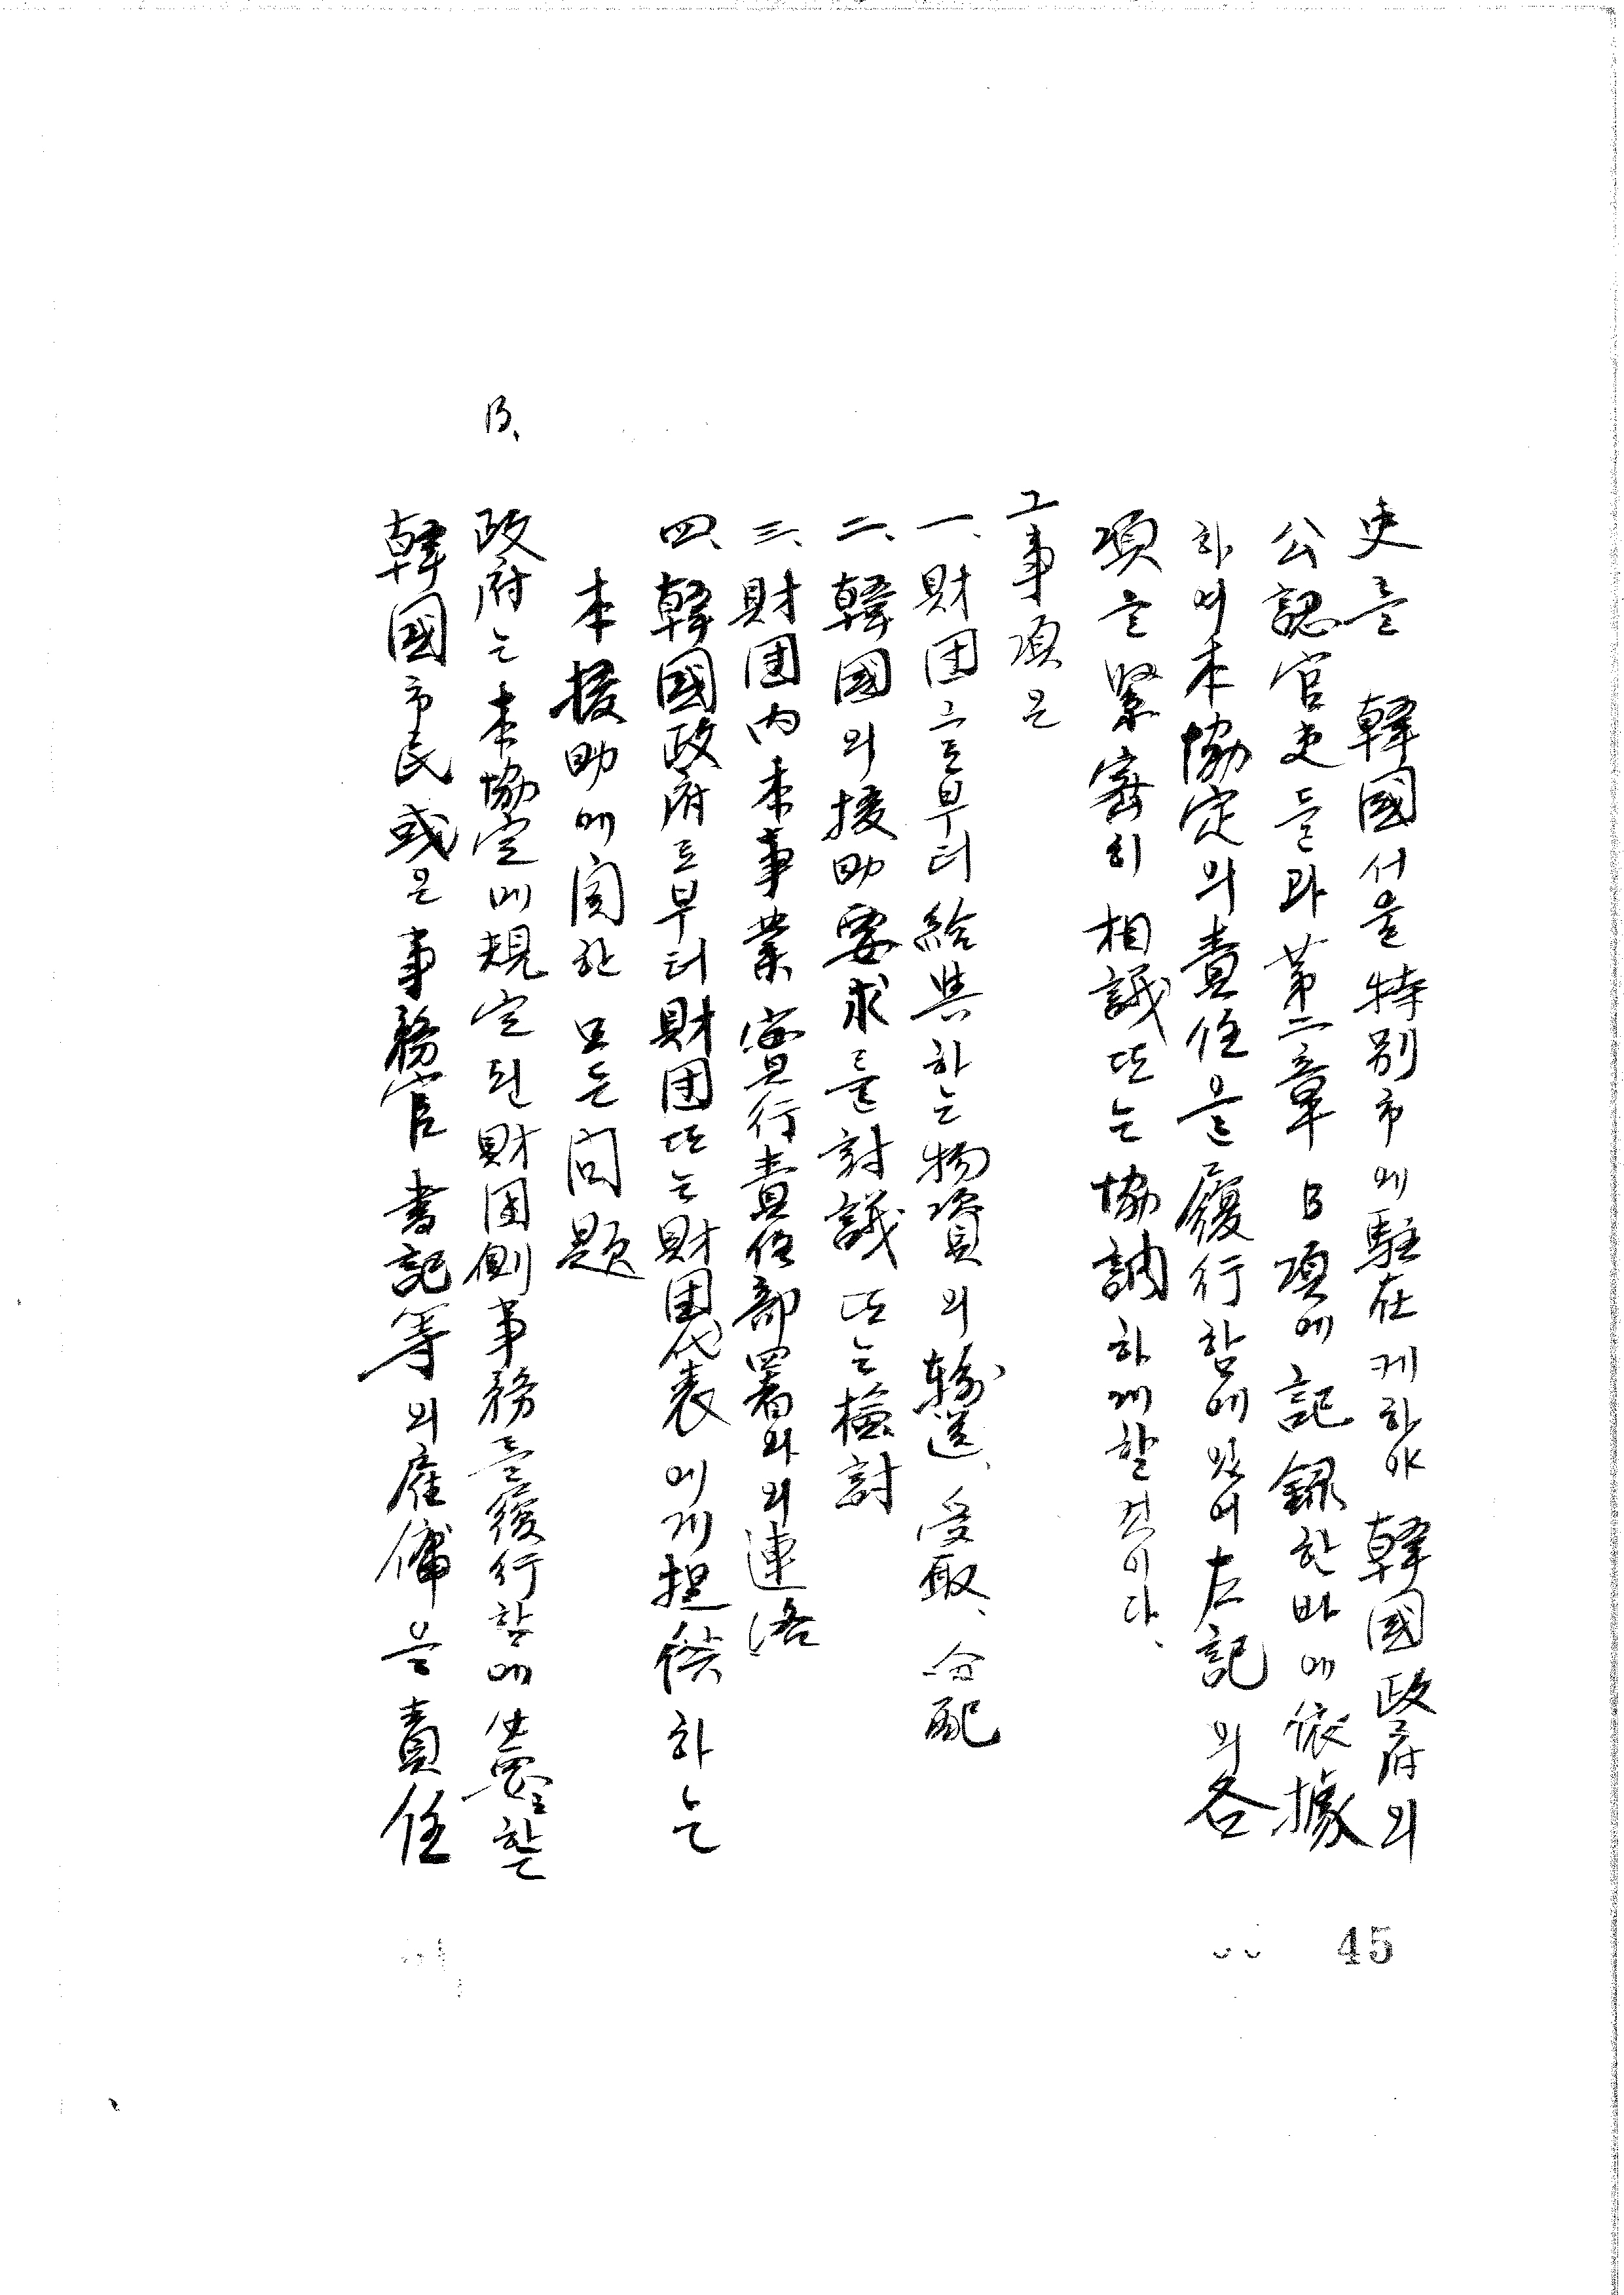 吏를 韓國서울特別市에駐在케하야 韓國政府의
公認官吏들과 第二章 B項에記錄한바에依據
하여本協定의責任을履行함에있어左記의各
項을緊密히 相議또는協調하게할것이다、
그事項은
一、財団으로부터給與하는物資의輸送、受取、分配
二、韓國의援助要求를討議또는檢討
三、財団内本事業實行責任部署와의連洛
四、韓國政府로부터財団또는財団代表에게担供하는
本援助에関한모든问題
B、
政府는本協定에規定된財団側事務를履行함에 必要할
韓國市民或은事務官書記等의雇傭을責任
45